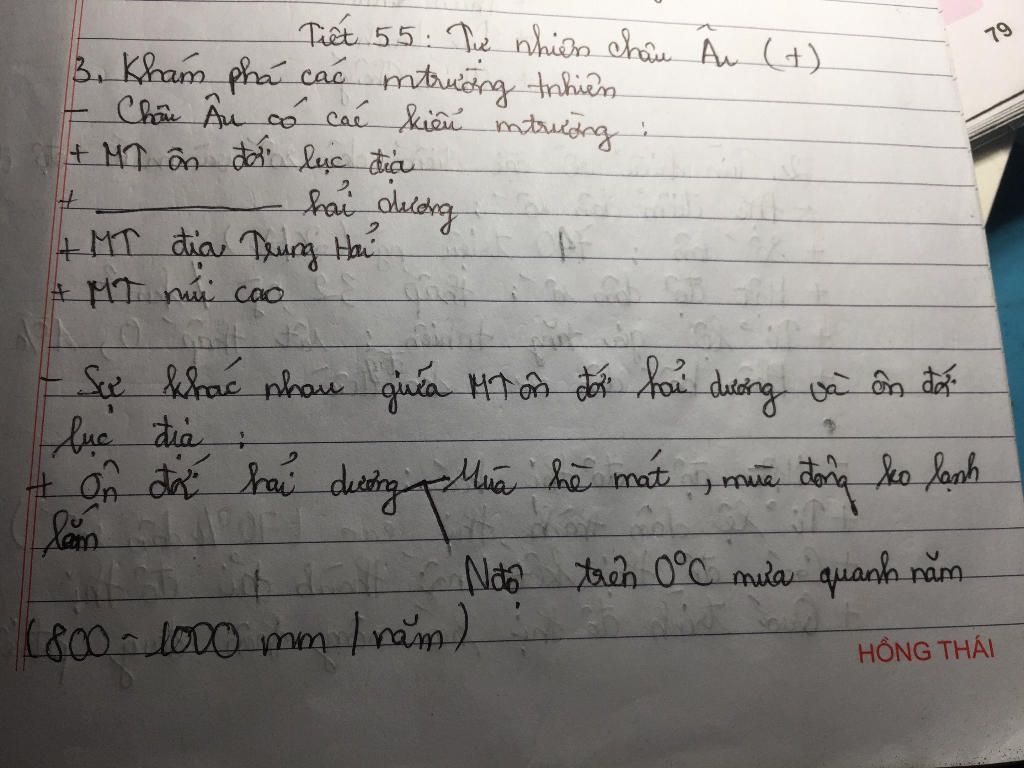 79
Tiết 55: Tự nhiên châu Âu (+)
3. Khám phá các mtrường tnhiên
- Châu Âu có các kiểu mtrường :
+ MT ôn đới lục địa
+ ――――― hải dương
+ MT địa Trung Hải
+ MT núi cao
- Sự khác nhau giữa MT ôn đới hải dương và ôn đới
lục địa :
+ Ôn đới hải dương Mùa hè mát, mùa đông ko lạnh
lắm
Nđộ trên 0°C mưa quanh năm
(800 - 1000 mm / năm)
HỒNG THÁI